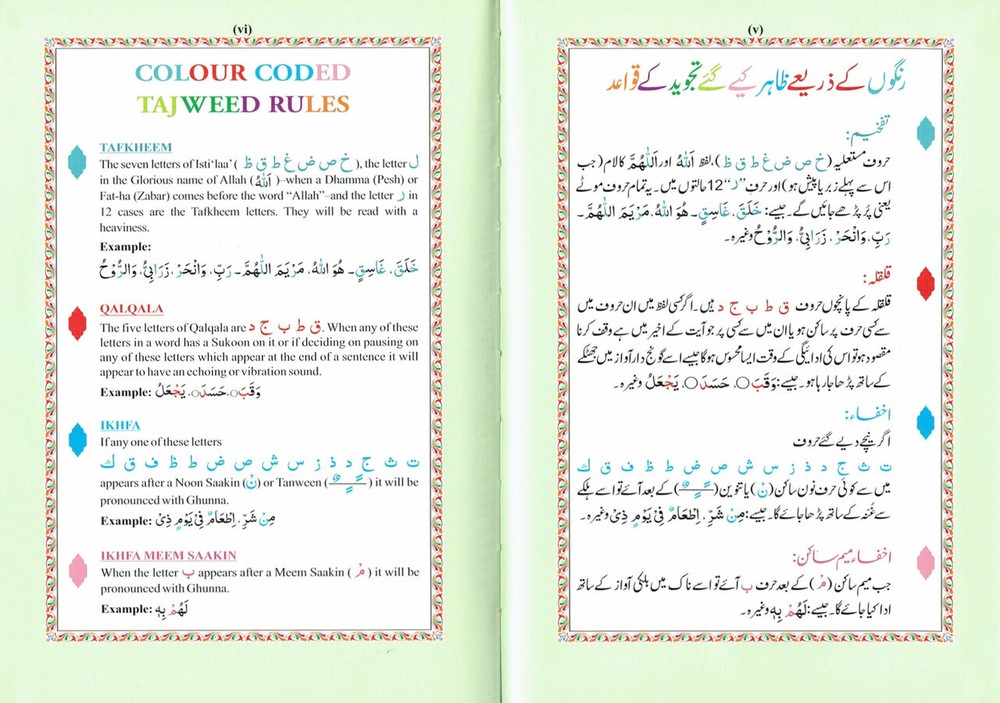 (vi)
COLOUR CODED
TAJWEED RULES
TAFKHEEM
The seven letters of Isti‘laa’ ( خ ص ض غ ط ق ظ ), the letter ل
in the Glorious name of Allah ( اَللّٰهُ )–when a Dhamma (Pesh) or
Fat-ha (Zabar) comes before the word “Allah”–and the letter ر in
12 cases are the Tafkheem letters. They will be read with a
heaviness.
Example:
خَلَقَ، غَاسِقٍ۔ هُوَ اللّٰهُ، مَرْيَمَ اللّٰهُمَّ۔ رَبِّ، وَانْحَرْ، زَرَابِيُّ، وَالرُّوْحُ
QALQALA
The five letters of Qalqala are ق ط ب ج د. When any of these
letters in a word has a Sukoon on it or if deciding on pausing on
any of these letters which appear at the end of a sentence it will
appear to have an echoing or vibration sound.
Example: وَقَبَ○، حَسَدَ○، يَجْعَلُ
IKHFA
If any one of these letters
ت ث ج د ذ ز س ش ص ض ط ظ ف ق ك
appears after a Noon Saakin (نْ) or Tanween ( ـًـٍـٌ ) it will be
pronounced with Ghunna.
Example: مِنْ شَرِّ، اِطْعَامٌ فِيْ يَوْمٍ ذِيْ
IKHFA MEEM SAAKIN
When the letter ب appears after a Meem Saakin ( مْ ) it will be
pronounced with Ghunna.
Example: لَهُمْ بِهٖ
(v)
رنگوں کے ذریعے ظاہر کیے گئے تجوید کے قواعد
تفخیم:
حروف مستعلیہ (خ ص ض غ ط ق ظ)، لفظ اَللّٰهُ اور اَللّٰهُمَّ کا لام (جب
اس سے پہلے زبر یا پیش ہو) اور حرف ”ر“ 12 حالتوں میں۔ یہ تمام حروف موٹے
یعنی پُر پڑھے جائیں گے۔ جیسے: خَلَقَ، غَاسِقٍ۔ هُوَ اللّٰهُ، مَرْيَمَ اللّٰهُمَّ۔
رَبِّ، وَانْحَرْ، زَرَابِيُّ، وَالرُّوْحُ وغیرہ۔
قلقلہ:
قلقلہ کے پانچوں حروف ق ط ب ج د ہیں۔ اگر کسی لفظ میں ان حروف میں
سے کسی حرف پر ساکن ہو یا ان میں سے کسی پر جو آیت کے اخیر میں ہے وقف کرنا
مقصود ہو تو اس کی ادائیگی کے وقت ایسا محسوس ہوگا جیسے اسے گونج دار آواز میں جھٹکے
کے ساتھ پڑھا جارہا ہو۔ جیسے: وَقَبَ○، حَسَدَ○، يَجْعَلُ وغیرہ۔
اخفاء:
اگر نیچے دیے گئے حروف
ت ث ج د ذ ز س ش ص ض ط ظ ف ق ك
میں سے کوئی حرف نون ساکن (نْ) یا تنوین (ـًـٍـٌ) کے بعد آئے تو اسے ہلکے
سے غُنہ کے ساتھ پڑھا جائے گا۔ جیسے: مِنْ شَرِّ، اِطْعَامٌ فِيْ يَوْمٍ ذِيْ وغیرہ۔
اخفاء میم ساکن:
جب میم ساکن (مْ) کے بعد حرف ب آئے تو اسے ناک میں ہلکی آواز کے ساتھ
ادا کیا جائے گا۔ جیسے: لَهُمْ بِهٖ وغیرہ۔